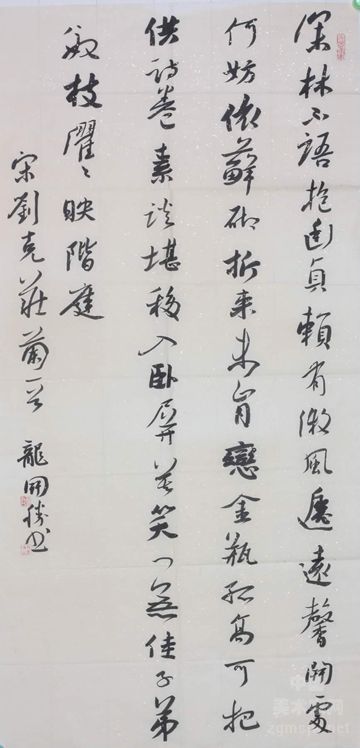 深林不語抱幽貞賴有微風遞遠馨開處
何妨依蘚砌折来未肯戀金瓶孤高可挹
供詩卷素淡堪移入卧屏莫笑门無佳子弟
数枝濯々映階庭
宋劉克莊蘭 龍開勝书